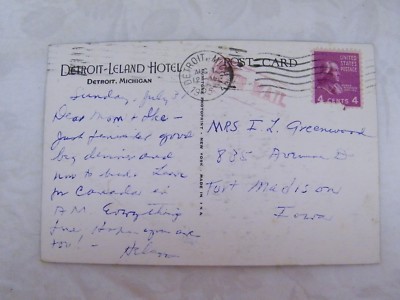 DETROIT-LELAND HOTEL
DETROIT, MICHIGAN
POST-CARD
DETROIT, MICH.
AUG
AIR MAIL
UNITED STATES
POSTAGE
4 CENTS 4
Sunday, July 31
Dear Mom & She -
Just finished good
big dinner and
now to bed. Leave
for Canada in
A.M. Everything
fine, Hope you are
too! -
NEW YORK MADE IN U.S.A.
MRS I. L. Greenwood
885 Avenue D
Fort Madison
Iowa